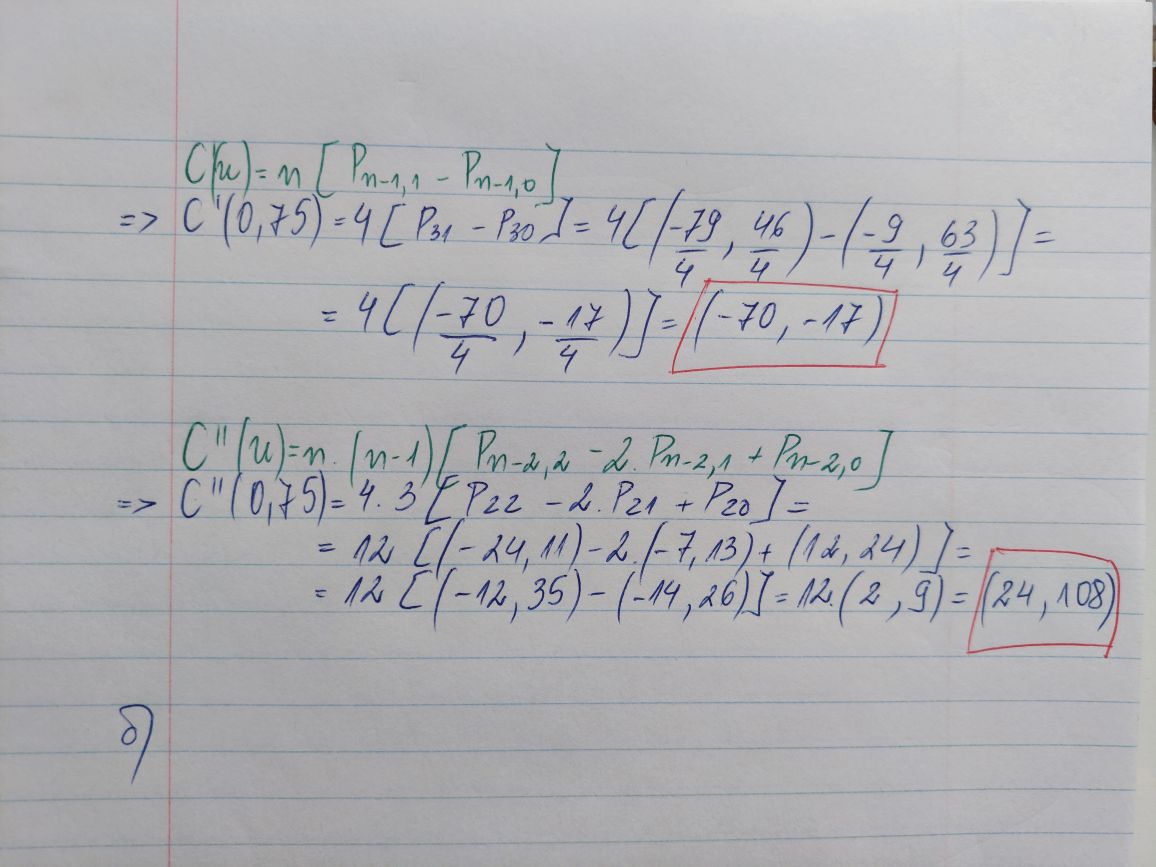 C'(u) = n [ P_{n-1,1} - P_{n-1,0} ]
=> C'(0,75) = 4 [ P_{31} - P_{30} ] = 4 [ (-79/4, 46/4) - (-9/4, 63/4) ] =
= 4 [ (-70/4, -17/4) ] = (-70, -17)
C''(u) = n. (n-1) [ P_{n-2,2} - 2. P_{n-2,1} + P_{n-2,0} ]
=> C''(0,75) = 4. 3 [ P_{22} - 2. P_{21} + P_{20} ] =
= 12 [ (-24, 11) - 2. (-7, 13) + (12, 24) ] =
= 12 [ (-12, 35) - (-14, 26) ] = 12. (2, 9) = (24, 108)
б)